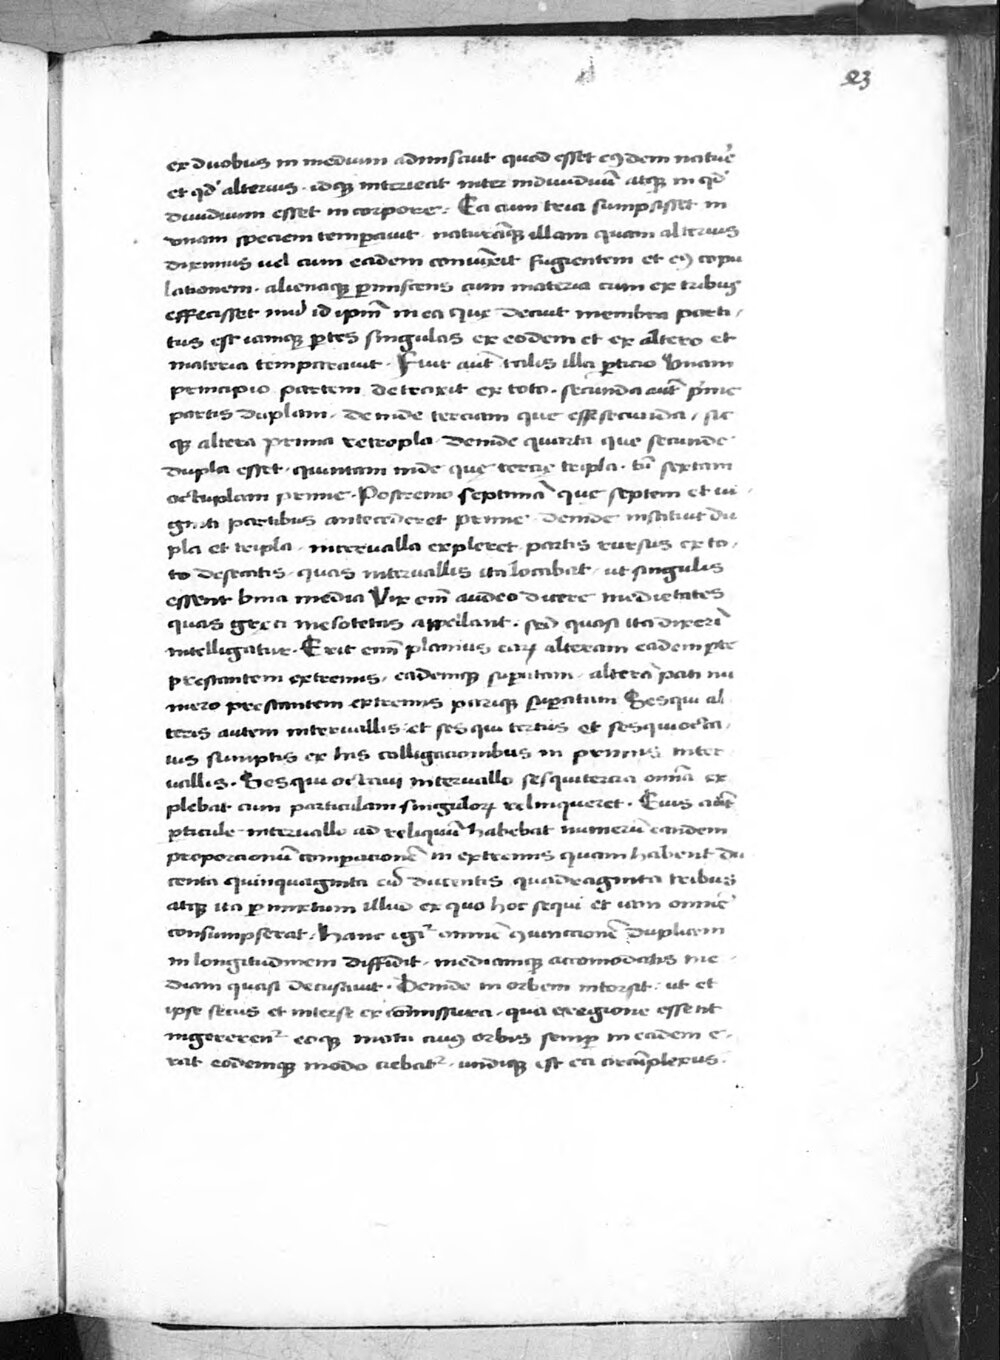 23
ex duobus in medium admiscuit quod esset eiꝰdem naturē
et qd' alterius · idqꝫ interiecit inter indiuiduū atqꝫ in qd'
diuiduum esset in corpore · Ea cum tria sumpsisset in
vnam speciem temperauit · naturāqꝫ illam quam alterius
diximus uel cum eadem coniūxit fugientem et eiꝰ copu
lationem · alienaqꝫ ꝑmiscens cum materia cum ex tribus
effecisset id ipm̄ in ea que decuit membra parti /
tus est iamqꝫ ꝑtes singulas ex eodem et ex altero et
materia temparauit · Fuit aut̄ talis illa ꝑticio Vnam
principio partem detraxit ex toto · secunda aut̄ pr̄me
partis duplam · deinde terciam que esse secunda / sic
qꝫ altera prima retropla · deinde quarta que secunde
dupla esset · quintam inde que tercie tripla · sextam
octuplam prime · Postremo septimā que septem et ui /
ginti partibus antecederet prime · deinde instituit du
pla et tripla · interualla expleret partis rursus ex to /
to desecatis · quas interuallis ita locabat · ut singulis
essent bina media Vix em̄ audeo dicere medietates
quas greci mesotetas appellant · sed quasi ita dixerī
intelligatur · Erit em̄ planius eaꝝ alteram eadem ꝑte
prestantem extremis · eademqꝫ suꝑatam · alterā pari nu
mero prestantem extremis pariqꝫ suꝑatam Sesqui al
teris autem interuallis et sesqui tertiis et sesquiocta /
uis sumptis ex his colligacionibus in primis inter
uallis · Sesqui octaui interuallo sesquitercia omīa ex
plebat cum particulam singuloꝝ relinqueret · Cuius aūt
ꝑticule interuallo ad reliquū habebat numerū eandem
proporcionū comꝑacionē in extremis quam habent du
centa quinquaginta cū ducentis quadraginta tribus
atqꝫ ita ꝑmixtum illud ex quo hoc sequi et iam omnē
consumpserat · Hanc igiᷣ omnē ꝯiunccionē duplicem
in longitudinem diffidit · mediamqꝫ accomodatis me /
diam quasi decusauit · Deinde in orbem intorsit · ut et
ipse secus et interse ex cōmissura · qua eregione essent
ingererenᷣ eoqꝫ motu cuiꝰ orbis semꝑ in eadem e /
rat eodemqꝫ modo ciebatᷣ · undiqꝫ est ea circūplexus ·